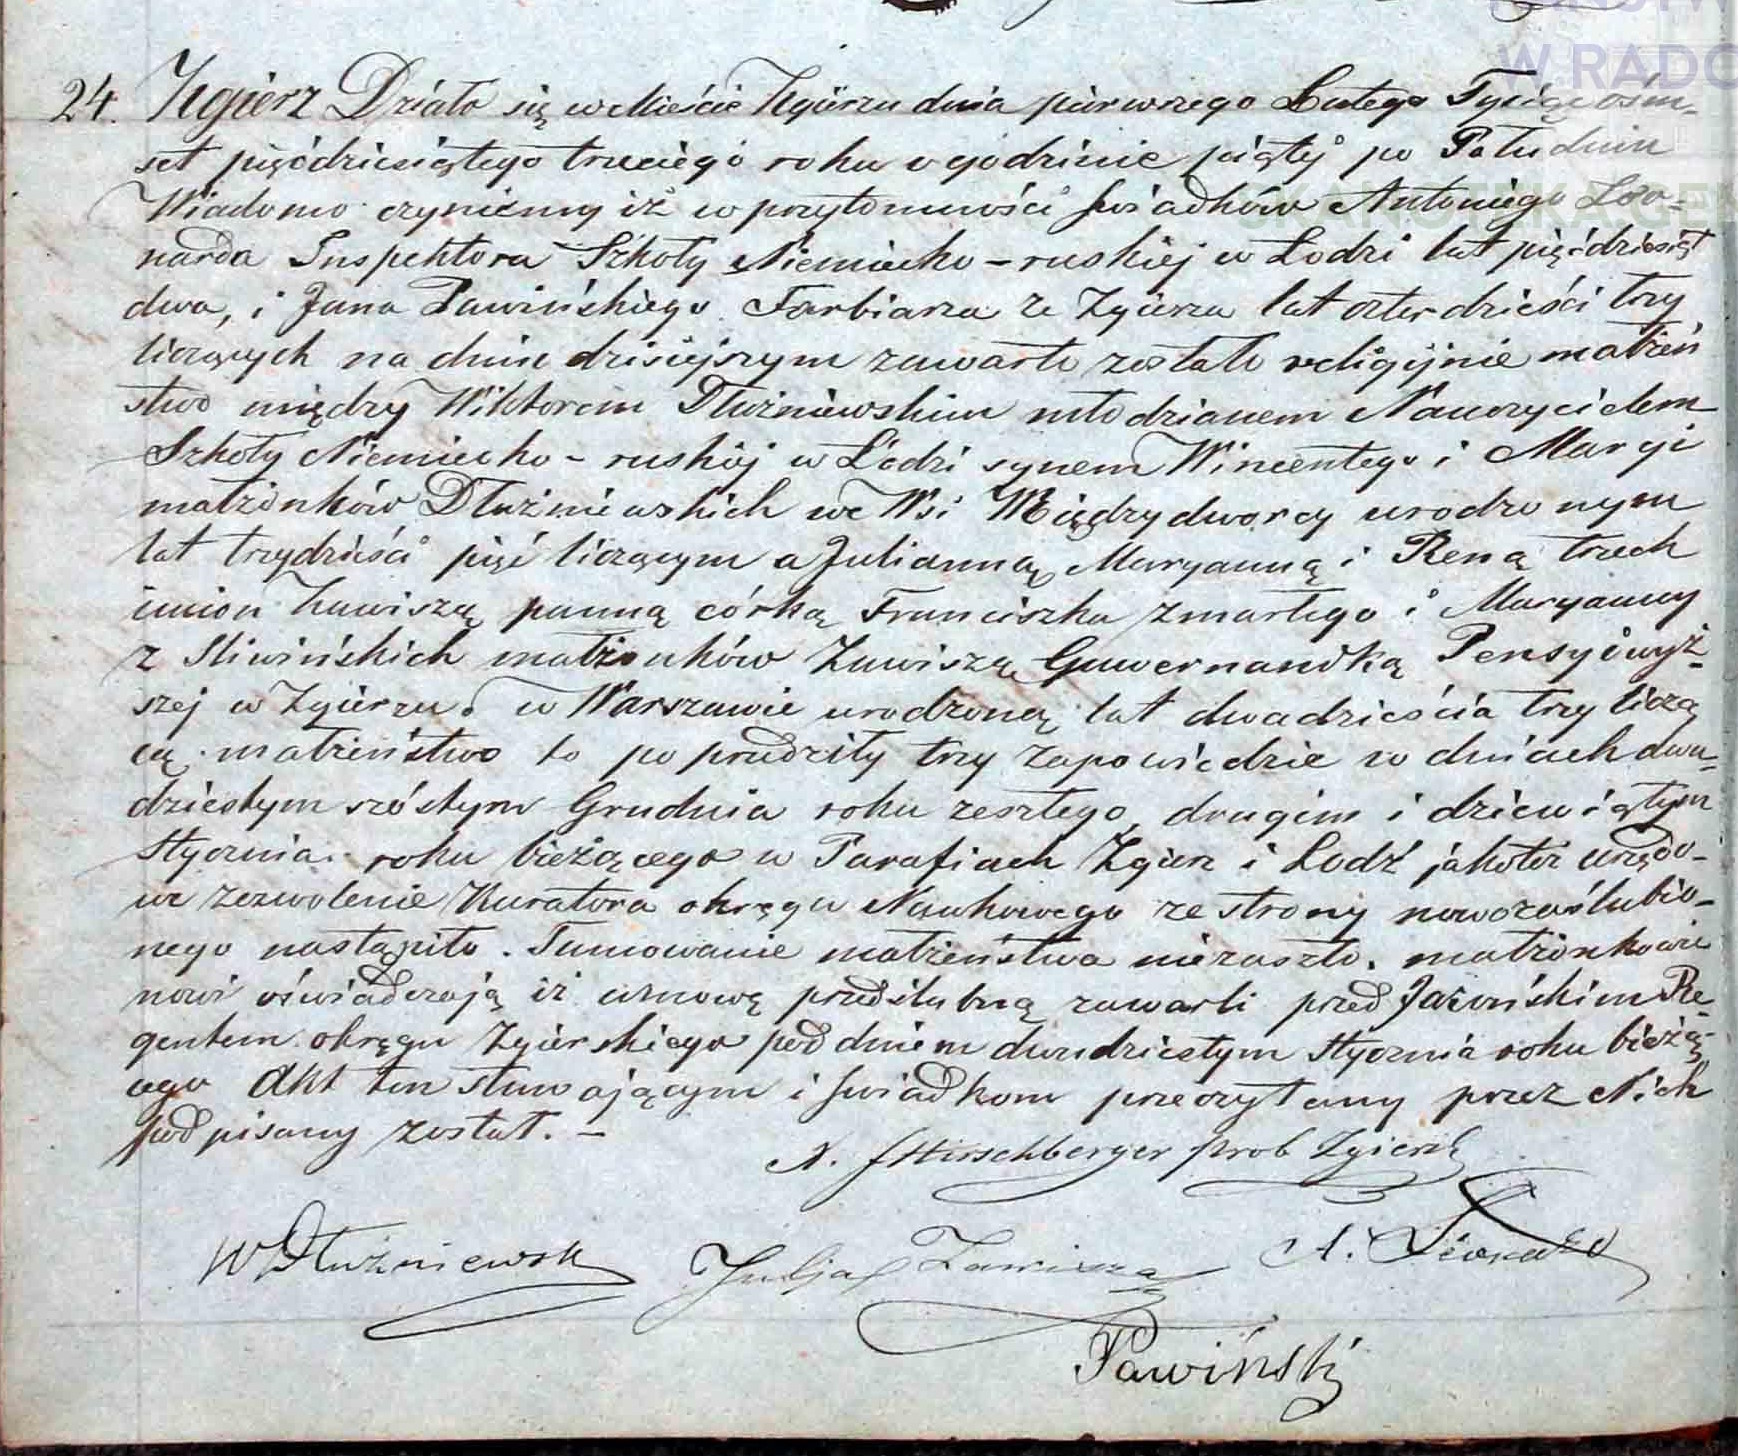 24. Zgierz Działo się w Mieście Zgierzu dnia pierwszego Lutego Tysiąc ośm-
set pięćdziesiątego trzeciego roku o godzinie piątej po Południu
Wiadomo czyniemy iż w przytomności świadków Antoniego Leo-
narda Inspektora Szkoły Niemiecko-ruskiej w Łodzi lat pięćdziesiąt
dwa, i Jana Pawińskiego Farbiarza ze Zgierza lat czterdzieści trzy
liczących na dniu dzisiejszym zawarte zostało religijnie małżeń
stwo między Wiktorem Dłużniewskim młodzianem Nauczycielem
Szkoły Niemiecko-ruskiej w Łodzi synem Wincentego i Maryi
małżonków Dłużniewskich we Wsi Międzydworcy urodzonym
lat trzydzieści pięć liczącym a Julianną, Maryanną i Reną trzech
imion Zawiszą panną córką Franciszka zmarłego i Maryanny
z Sliwińskich małżonków Zawiszą Guwernandką Pensyi wyż-
szej w Zgierzu. w Warszawie urodzoną lat dwadzieścia trzy liczą
cą. małżeństwo to poprzedziły trzy zapowiedzie w dniach dwu-
dziestym szóstym Grudnia roku zeszłego, drugim i dziewiątym
Stycznia roku bieżącego w Parafiach Zgierz i Łodź jakoteż urzędo-
we zezwolenie Kuratora okręgu Naukowego ze strony nowozaślubio-
nego nastąpiło. Tamowanie małżeństwa niezaszło. małżonkowie
nowi oświadczają iż umowę przedślubną zawarli przed Re
gentem okręgu Zgierskiego pod dniem dwudziestym Stycznia roku bieżą-
cego Akt ten stawającym i świadkom przeczytany przez Nich
podpisany został. –
X. Hirschberger prob Zgierski
W Dłużniewski Julja Zawisza A. Leonard
Pawiński
W RADO
SKANOTEKA.GEN